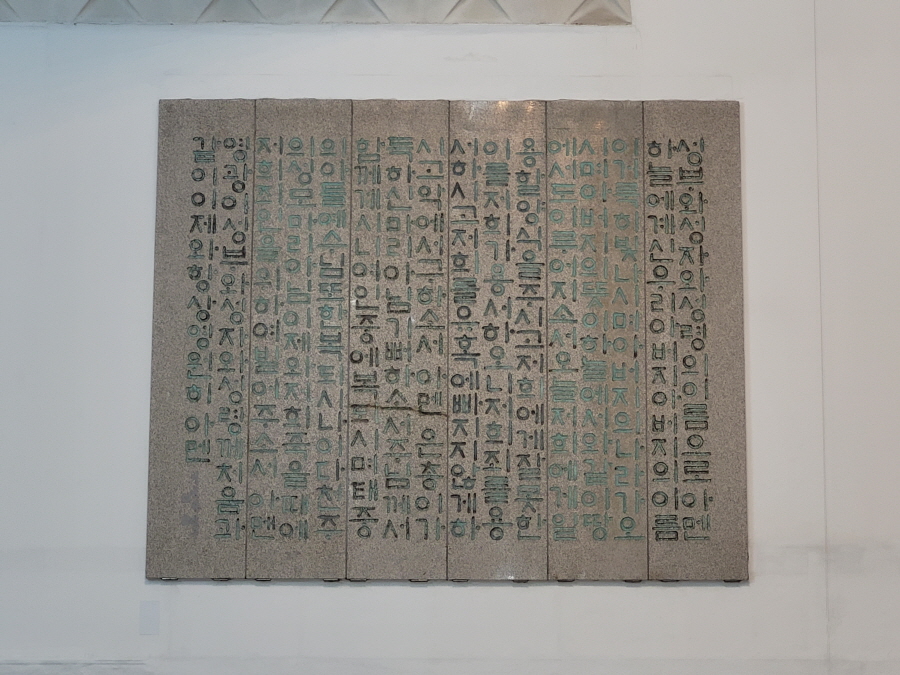 성부와성자와성령의이름으로아멘
하늘에계신우리아버지아버지의이름
이거룩히빛나시며아버지의나라가오
시며아버지의뜻이하늘에서와같이땅
에서도이루어지소서오늘저희에게일
용할양식을주시고저희에게잘못한
이를저희가용서하오니저희죄를용
서하시고저희를유혹에빠지지않게하
시고악에서구하소서아멘은총이가
득하신마리아님기뻐하소서주님께서
함께계시니여인중에복되시며태중
의아들예수님또한복되시나이다천주
의성모마리아님이제와저희죽을때에
저희죄인을위하여빌어주소서아멘
영광이성부와성자와성령께처음과
같이이제와항상영원히아멘